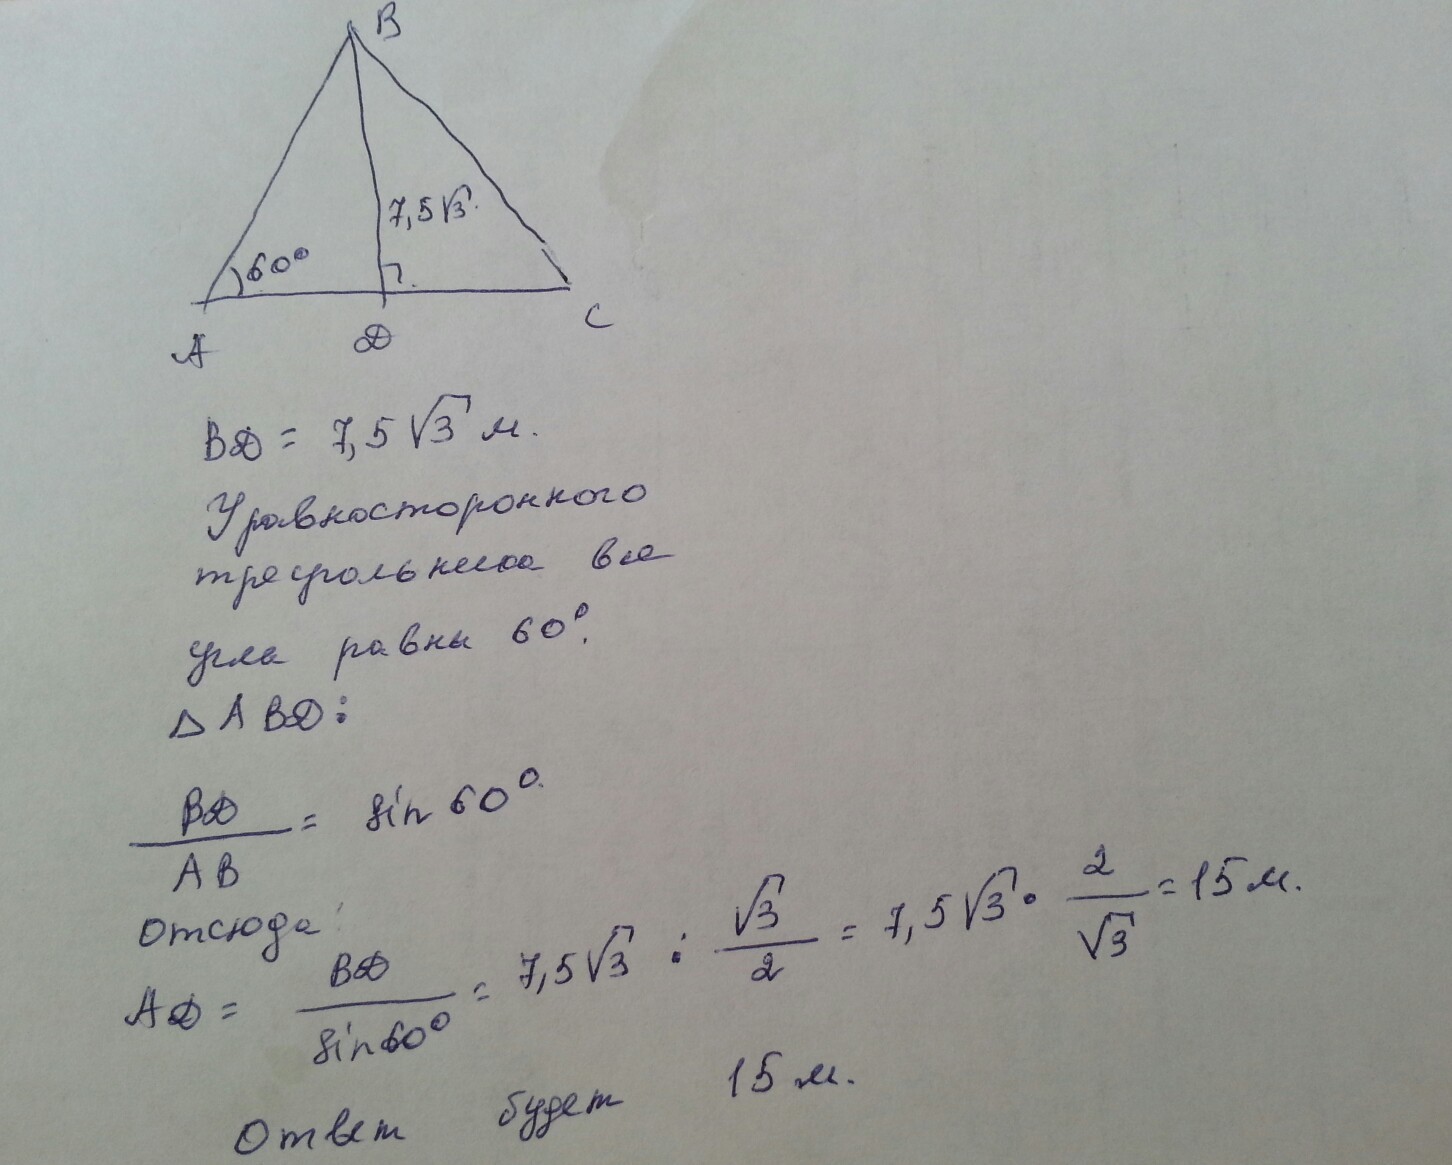 B
7,5√3
60°
A
D
C
BD = 7,5√3 м.
У равностороннего
треугольника все
угла равны 60°.
△ ABD:
BD / AB = sin 60°
Отсюда:
AD = BD / sin 60° = 7,5√3 : √3 / 2 = 7,5√3 · 2 / √3 = 15 м.
Ответ будет 15 м.